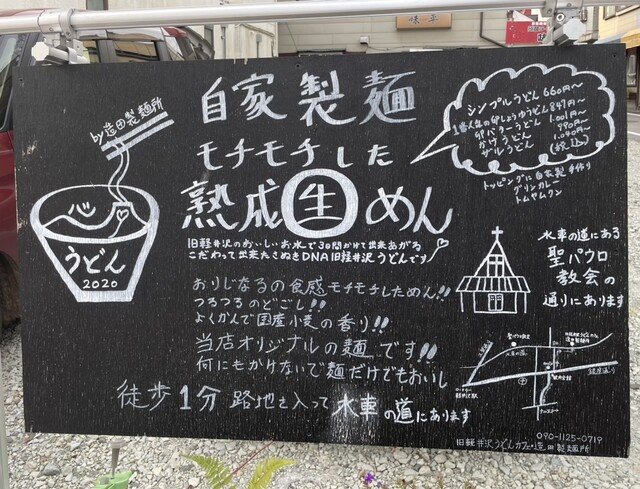 味平
by造田製麺所
自家製麺
モチモチした
熟成生めん
シンプルうどん 660円〜
1番人気の卵しょうゆうどん 847円〜
卵バターうどん 1,001円〜
かけうどん 990円〜
ザルうどん 1,040円〜
(税込)
トッピングに自家製手作り
グリンカレー
トムヤムクン
うどん
2020
旧軽井沢のおいしいお水で3日間かけて出来あがる
こだわって出来たさぬきDNA旧軽井沢うどんです
おりじなるの食感モチモチしためん!!
つるつるのどごし!!
よくかんで国産小麦の香り!!
当店オリジナルの麺です!!
何にもかけないで麺だけでもおいし
徒歩1分路地を入って水車の道にあります
水車の道にある
聖パウロ
教会の
通りにあります
水車の道
旧軽井沢うどんカフェ・造田製麺所
090-1125-0719